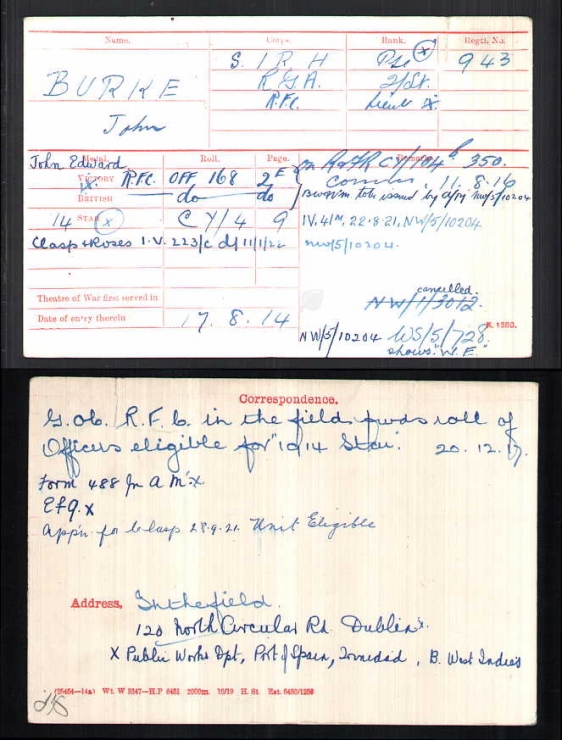 Name. Corps. Rank. Regtl. No.
BURKE S. I R H Pte (X) 943
R.G.A. 2/Lt.
R.F.C. Lieut X.
John
John Edward
Medal. Roll. Page. Remarks
VICTORY X. R.F.C. OFF 168 2E on R of I R CY/104 B 350.
Comm. 11. 8. 16
BRITISH do do BWV/m tobe issued by NW/5/10204
14 STAR (X) C Y/4 9 IV. 41M, 22.8.21, NW/5/10204
Clasp & Roses I.V. 223/c d/11/1/22 NW/5/10204.
cancelled.
Theatre of War first served in NW/1/3012.
Date of entry therein 17. 8. 14 NW/5/10204 WS/5/728. K. 1380.
shows "W.E."
Correspondence.
G.O.C. R.F.C. in the field fwds roll of
Officers eligible for "1914 Star". 20. 12. 17.
Form 488 for A M. X
E f 9. X
App'n for Clasp 28.9.21. Unit Eligible
Address, In the field.
120 North Circular Rd. Dublin.
X Public Works Dpt, Port of Spain, Trinidad, B. West Indies
(35454—14a) Wt. W 3347—H.P 6451 2000m. 10/19 H. St. Est. 6450/1250